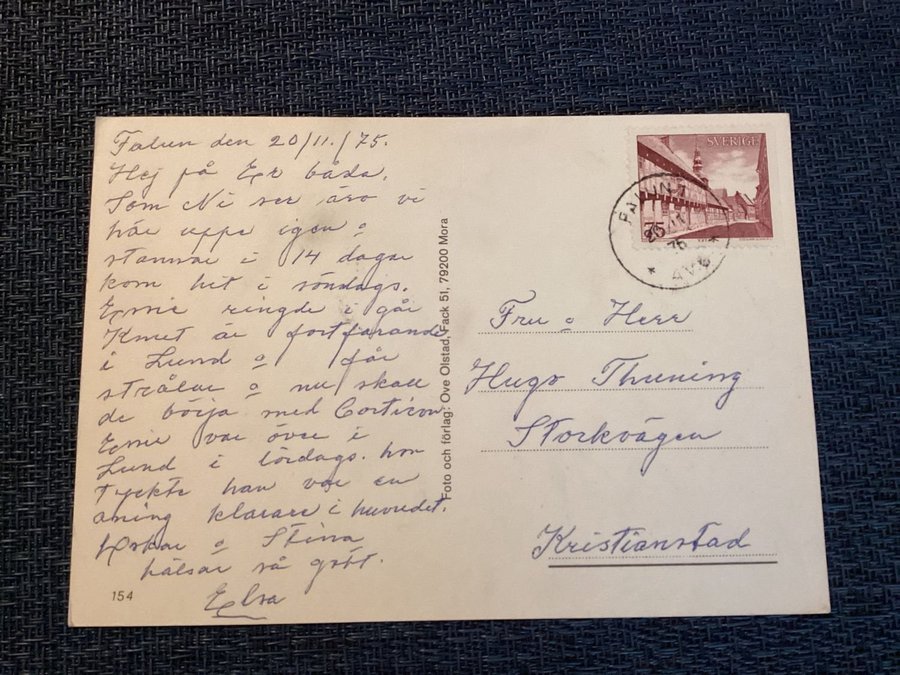 Falun den 20/11./75.
Hej på Er båda.
Som Ni ser äro vi
här uppe igen o
stannar i 14 dagar
kom hit i söndags.
Ernie ringde i går
Knut är fortfarande
i Lund o får
strålar o nu skall
de börja med Corticon
Ernie var över i
Lund i lördags. hon
tyckte han var en
aning klarare i huvudet.
Oskar o Stina
hälsar så gott.
Elsa
154
Foto och förlag: Ove Olstad, Fack 51, 79200 Mora
SVERIGE
75
FALUN 1
20 11
75
AVG
Fru o Herr
Hugo Thuning
Storkvägen
Kristianstad